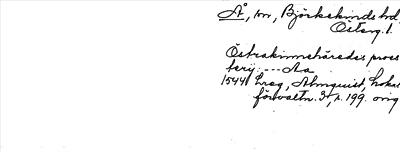 Å, sn, Björkekinds hd,
Österg. l.
Östrakinnehäredes pros
terij --- Aa
1544 hreg, Almquist, Lokal
förvaltn. 3, s. 199. orig